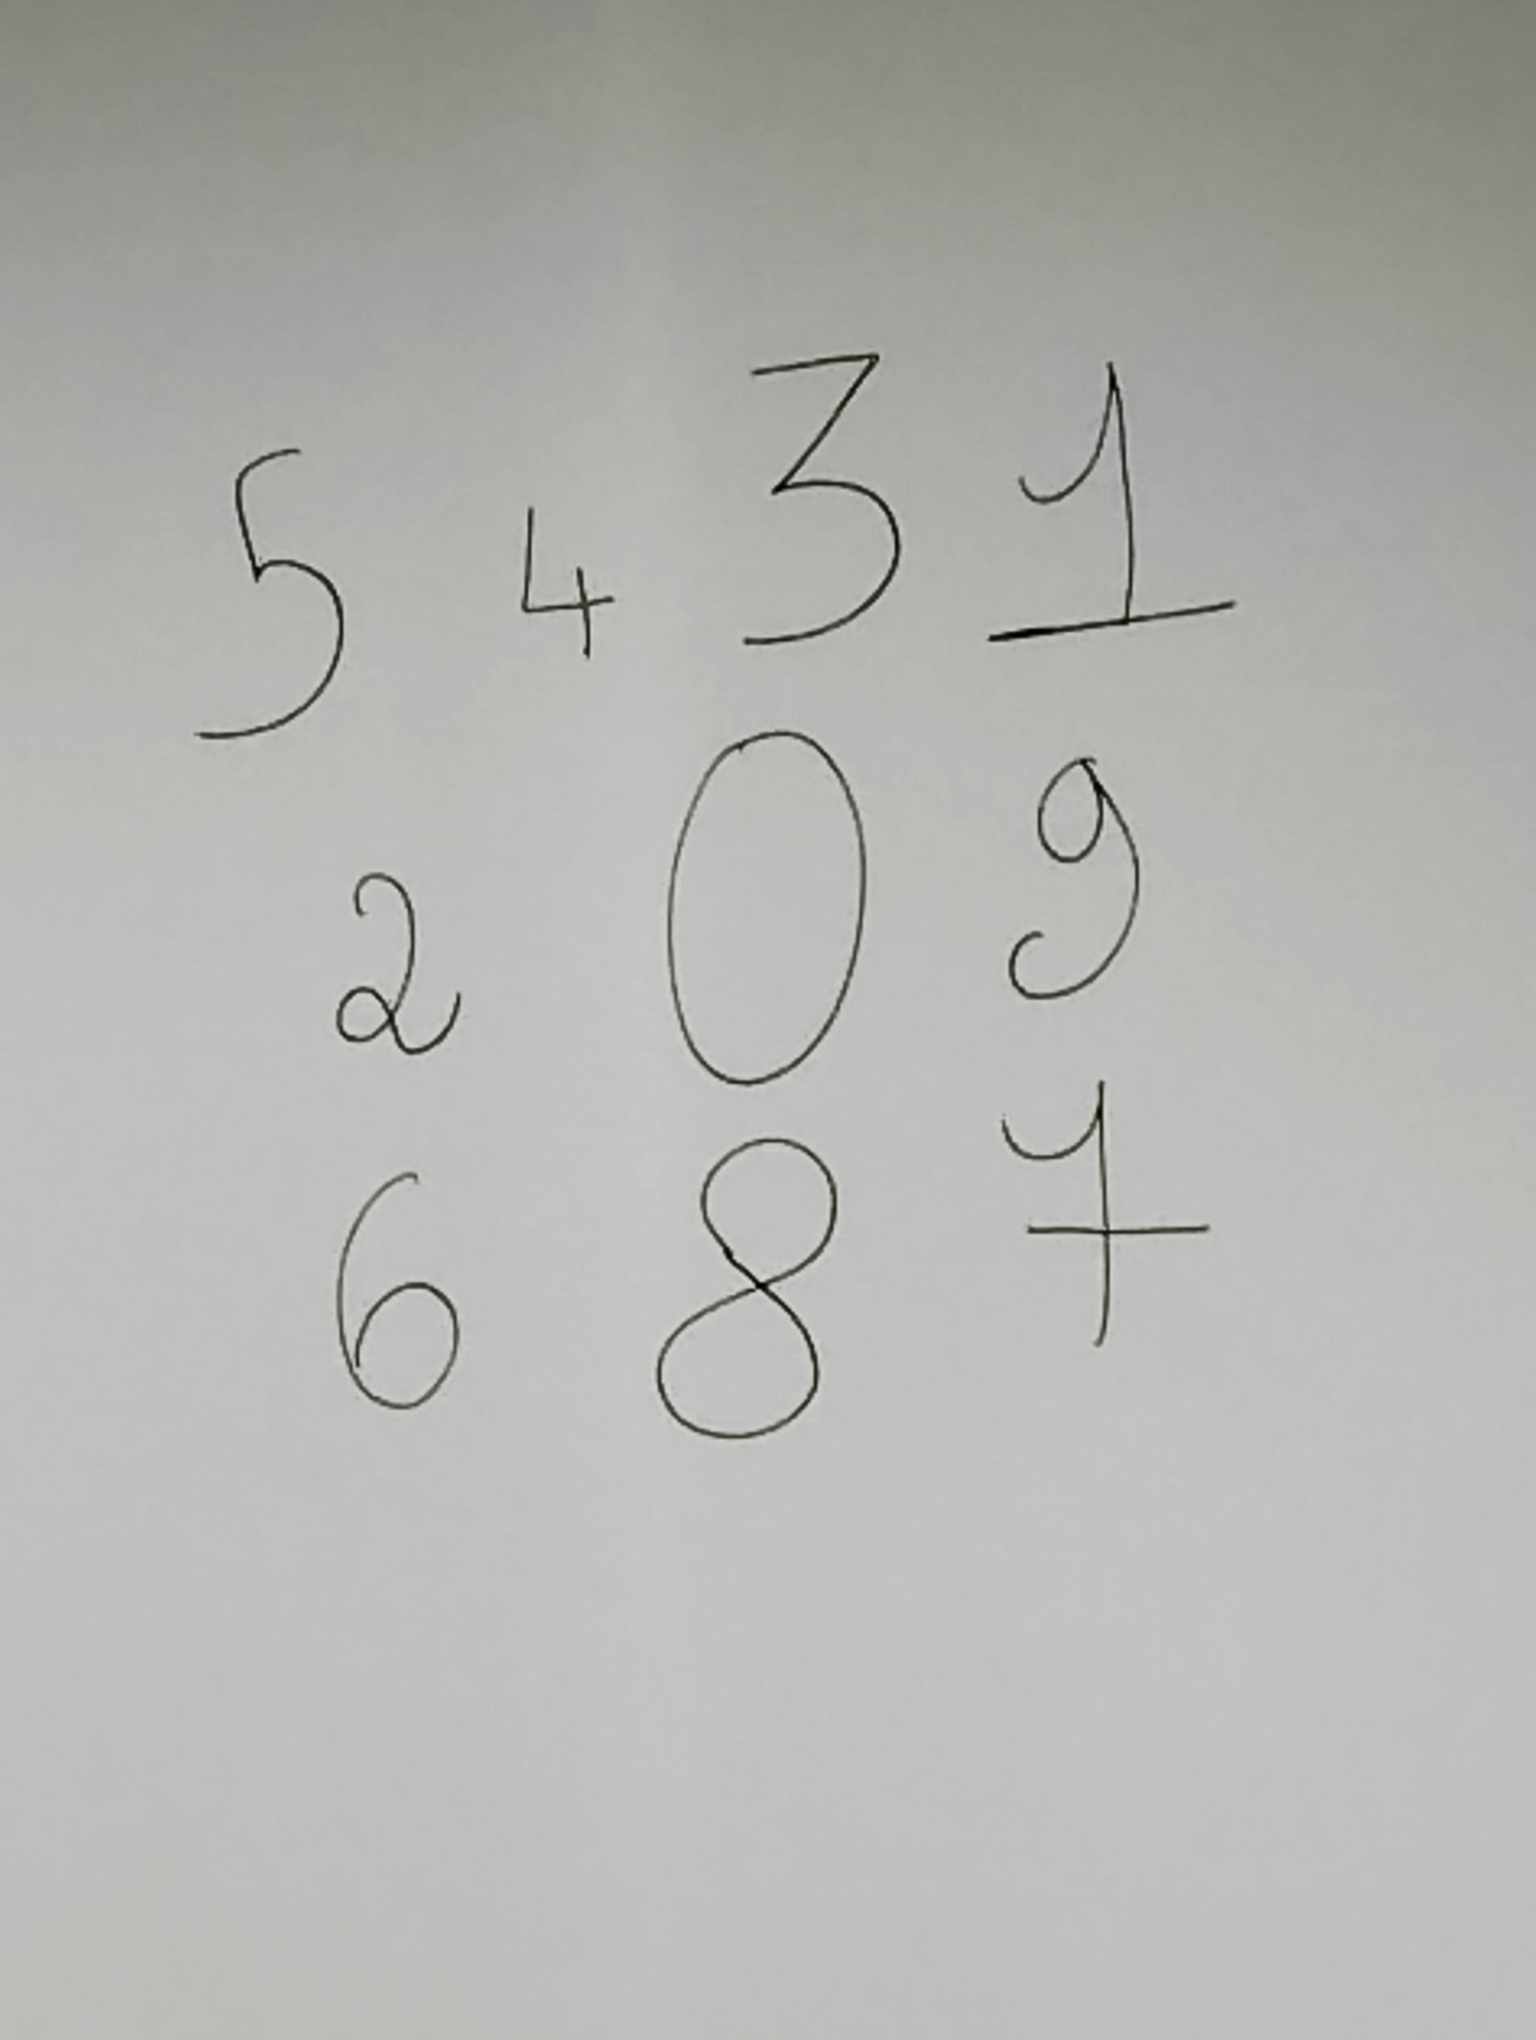 5 4 3 1
2 0 9
6 8 7